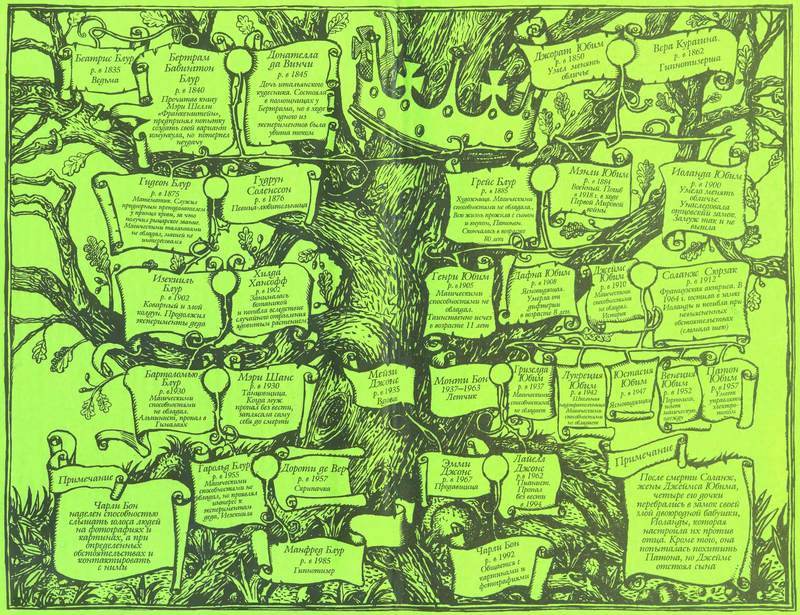 Беатрис Блур
р. в 1835
Ведьма
Бертрам
Бабингтон
Блур
р. в 1840
Прочитав книгу
Мэри Шелли
«Франкенштейн»,
предпринял попытку
создать свой вариант
гомункула, но потерпел
неудачу
Донателла
да Винчи
р. в 1845
Дочь итальянского
кудесника. Состояла
в помощницах у
Бертрама, но в ходе
одного из
экспериментов была
убита током
Джорат Юбим
р. в 1850
Умел менять
обличье
Вера Курагина.
р. в 1862
Гипнотизерша
Гидеон Блур
р. в 1875
Математик. Служил
придворным преподавателем
у принца крови, за что
получил рыцарское звание.
Магическими талантами
не обладал, магией не
интересовался
Гудрун
Соленссон
р. в 1876
Певица-любительница
Грейс Блур
р. в 1885
Художница. Магическими
способностями не обладала.
Всю жизнь прожила с сыном
и внуком, Патоном.
Скончалась в возрасте
80 лет
Мэнли Юбим
р. в 1884
Военный. Погиб
в 1918 г. в ходе
Первой Мировой
войны
Иоланда Юбим
р. в 1900
Умела менять
обличье.
Унаследовала
отцовский замок.
Замуж так и не
вышла
Изекииль
Блур
р. в 1902
Коварный и злой
колдун. Продолжил
эксперименты деда
Хильда
Хансофф
р. в 1902
Занималась
ботаникой
и погибла вследствие
случайного отравления
ядовитым растением
Генри Юбим
р. в 1905
Магическими
способностями не
обладал.
Таинственно исчез
в возрасте 11 лет
Дафна Юбим
р. в 1908
Ясновидящая.
Умерла от
дифтерии
в возрасте 8 лет
Джеймс
Юбим
р. в 1910
Магическими
способностями
не обладал.
Историк
Соланж Сюрзак
р. в 1912
Французская актриса. В
1964 г. гостила в замке
Иоланды и погибла при
невыясненных
обстоятельствах
(сломала шею)
Бартоломью
Блур
р. в 1930
Магическими
способностями
не обладал.
Альпинист, пропал в
Гималаях
Мэри Шанс
р. в 1930
Танцовщица.
Когда муж
пропал без вести,
заплясала саму
себя до смерти
Мейзи
Джонс
р. в 1935
Вдова
Монти Бон
1937–1963
Летчик
Гризелда
Юбим
р. в 1937
Магическими
способностями
не обладает
Лукреция
Юбим
р. в 1942
Школьная
надзирательница.
Магическими
способностями
не обладает
Юстасия
Юбим
р. в 1947
Ясновидящая
Венеция
Юбим
р. в 1952
Портниха,
шьет
магическую
одежду
Патон
Юбим
р. в 1957
Умеет
управлять
электричеством
Примечание
Чарли Бон
наделен способностью
слышать голоса людей
на фотографиях и
картинах, а при
определенных
обстоятельствах и
контактировать
с ними
Гарольд Блур
р. в 1955
Магическими
способностями не
обладал, но проявлял
интерес к
экспериментам
деда, Изекииля
Дороти де Вер
р. в 1957
Скрипачка
Эмми
Джонс
р. в 1967
Продавщица
Лайелл
Джонс
р. в 1962
Пианист.
Пропал
без вести
в 1994
Примечание
После смерти Соланж,
жены Джеймса Юбима,
четыре его дочки
перебрались в замок своей
злой двоюродной бабушки,
Иоланды, которая
настроила их против
отца. Кроме того, она
попыталась похитить
Патона, но Джеймс
отстоял сына
Манфред Блур
р. в 1985
Гипнотизер
Чарли Бон
р. в 1992
Общается с
картинами и
фотографиями